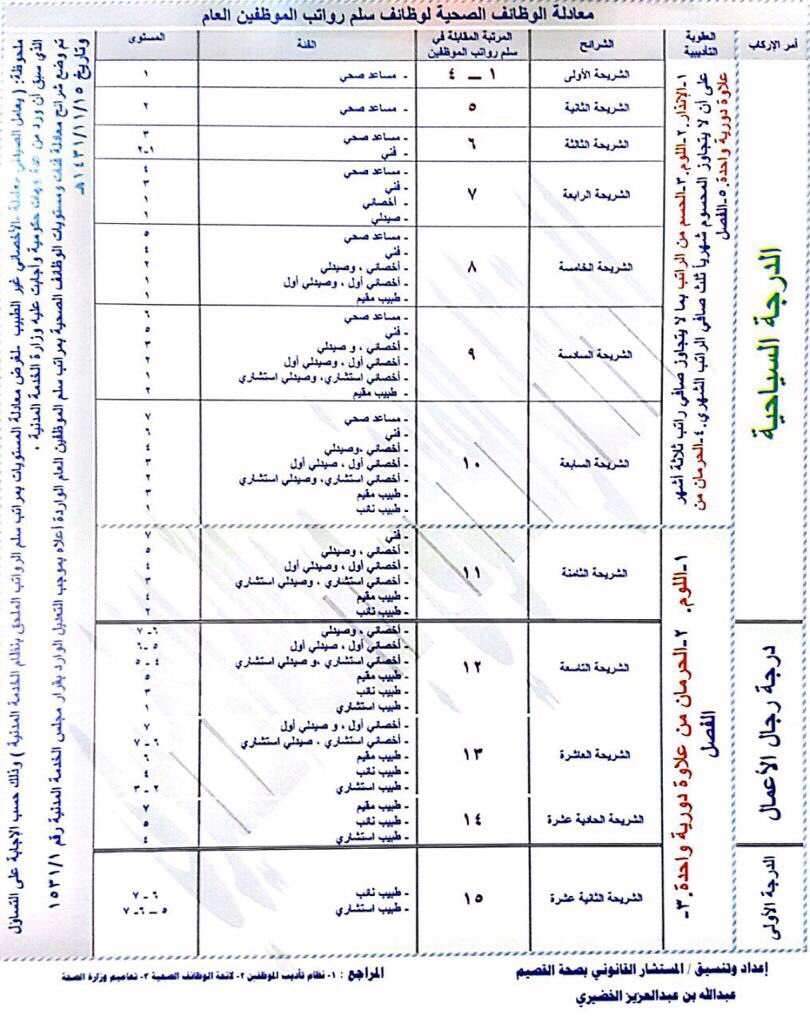 معادلة الوظائف الصحية لوظائف سلم رواتب الموظفين العام
أمر الإركاب
العقوبة التأديبية
الشرائح
المرتبة المقابلة في سلم رواتب الموظفين
الفئة
المستوى
الشريحة الأولى
١ – ٤
- مساعد صحي ١
الشريحة الثانية
٥
- مساعد صحي ٢
الشريحة الثالثة
٦
- مساعد صحي
- فني
الشريحة الرابعة
٧
- مساعد صحي
- فني
- أخصائي
- صيدلي
الشريحة الخامسة
٨
- مساعد صحي
- فني
- أخصائي ، وصيدلي
- أخصائي أول ، وصيدلي أول
- طبيب مقيم
الشريحة السادسة
٩
- مساعد صحي
- فني
- أخصائي ، و صيدلي
- أخصائي أول ، وصيدلي أول
- أخصائي استشاري، وصيدلي استشاري
- طبيب مقيم
الشريحة السابعة
١٠
- مساعد صحي
- فني
- أخصائي ،وصيدلي
- أخصائي أول ، صيدلي أول
- أخصائي استشاري، وصيدلي استشاري
- طبيب مقيم
- طبيب نائب
الشريحة الثامنة
١١
- فني
- أخصائي ، وصيدلي
- أخصائي أول ، وصيدلي أول
- أخصائي استشاري ، وصيدلي استشاري
- طبيب مقيم
- طبيب نائب
الشريحة التاسعة
١٢
- أخصائي ، وصيدلي
- أخصائي أول ، صيدلي أول
- أخصائي استشاري ،و صيدلي استشاري
- طبيب مقيم
- طبيب نائب
- طبيب استشاري
الشريحة العاشرة
١٣
- أخصائي أول ، و صيدلي أول
- أخصائي استشاري ، صيدلي استشاري
- طبيب مقيم
- طبيب نائب
- طبيب استشاري
الشريحة الحادية عشرة
١٤
- طبيب مقيم ٧
- طبيب نائب ٥
- طبيب استشاري ٤
الشريحة الثانية عشرة
١٥
- طبيب نائب ٦-٧
- طبيب استشاري ٥-٦-٧
الدرجة السياحية
درجة رجال الأعمال
الدرجة الأولى
١-الإنذار. ٢-اللوم. ٣-الحسم من الراتب بما لا يتجاوز صافي راتب ثلاثة أشهر
على أن لا يتجاوز المحسوم شهرياً ثلث صافي الراتب الشهري. ٤-الحرمان من
علاوة دورية واحدة. ٥-الفصل
١-اللوم. ٢-الحرمان من علاوة دورية واحدة. ٣-
الفصل
تم وضع شرائح معادلة فئات ومستويات الوظائف الصحية بمراتب سلم الموظفين العام الواردة أعلاه بموجب التعديل الوارد بقرار مجلس الخدمة المدنية رقم ١٥٣١/١
وتاريخ ١٤٣١/١١/١٥هـ
ملحوظة: ( يعامل الصيدلي معاملة الأخصائي غير الطبيب لغرض معادلة المستويات بمراتب سلم الرواتب الملحق بنظام الخدمة المدنية ) وذلك حسب الإجابة على التساؤل
الذي سبق أن ورد من عدة جهات حكومية وأجابت عليه وزارة الخدمة المدنية .
إعداد وتنسيق / المستشار القانوني بصحة القصيم
عبدالله بن عبدالعزيز الخضيري
المراجع : ١- نظام تأديب الموظفين ٢- لائحة الوظائف الصحية ٣- تعاميم وزارة الصحة